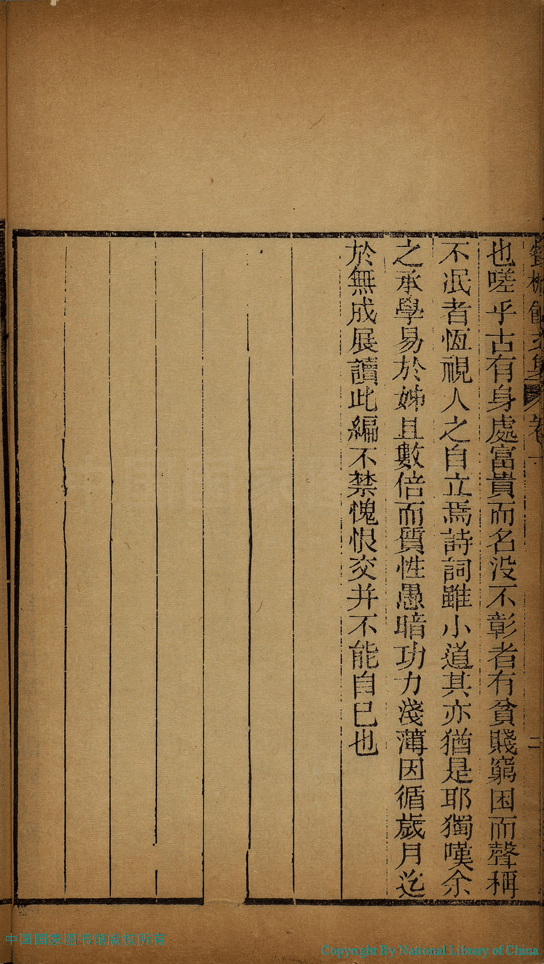 也嗟乎古有身處富貴而名没不彰者有貧賤窮困而聲稱
不泯者恆視人之自立焉詩詞雖小道其亦猶是耶獨嘆余
之承學易於姊且數倍而質性愚暗功力淺薄因循歲月迄
於無成展讀此編不禁愧恨交并不能自已也
二
Copyright By National Library of China